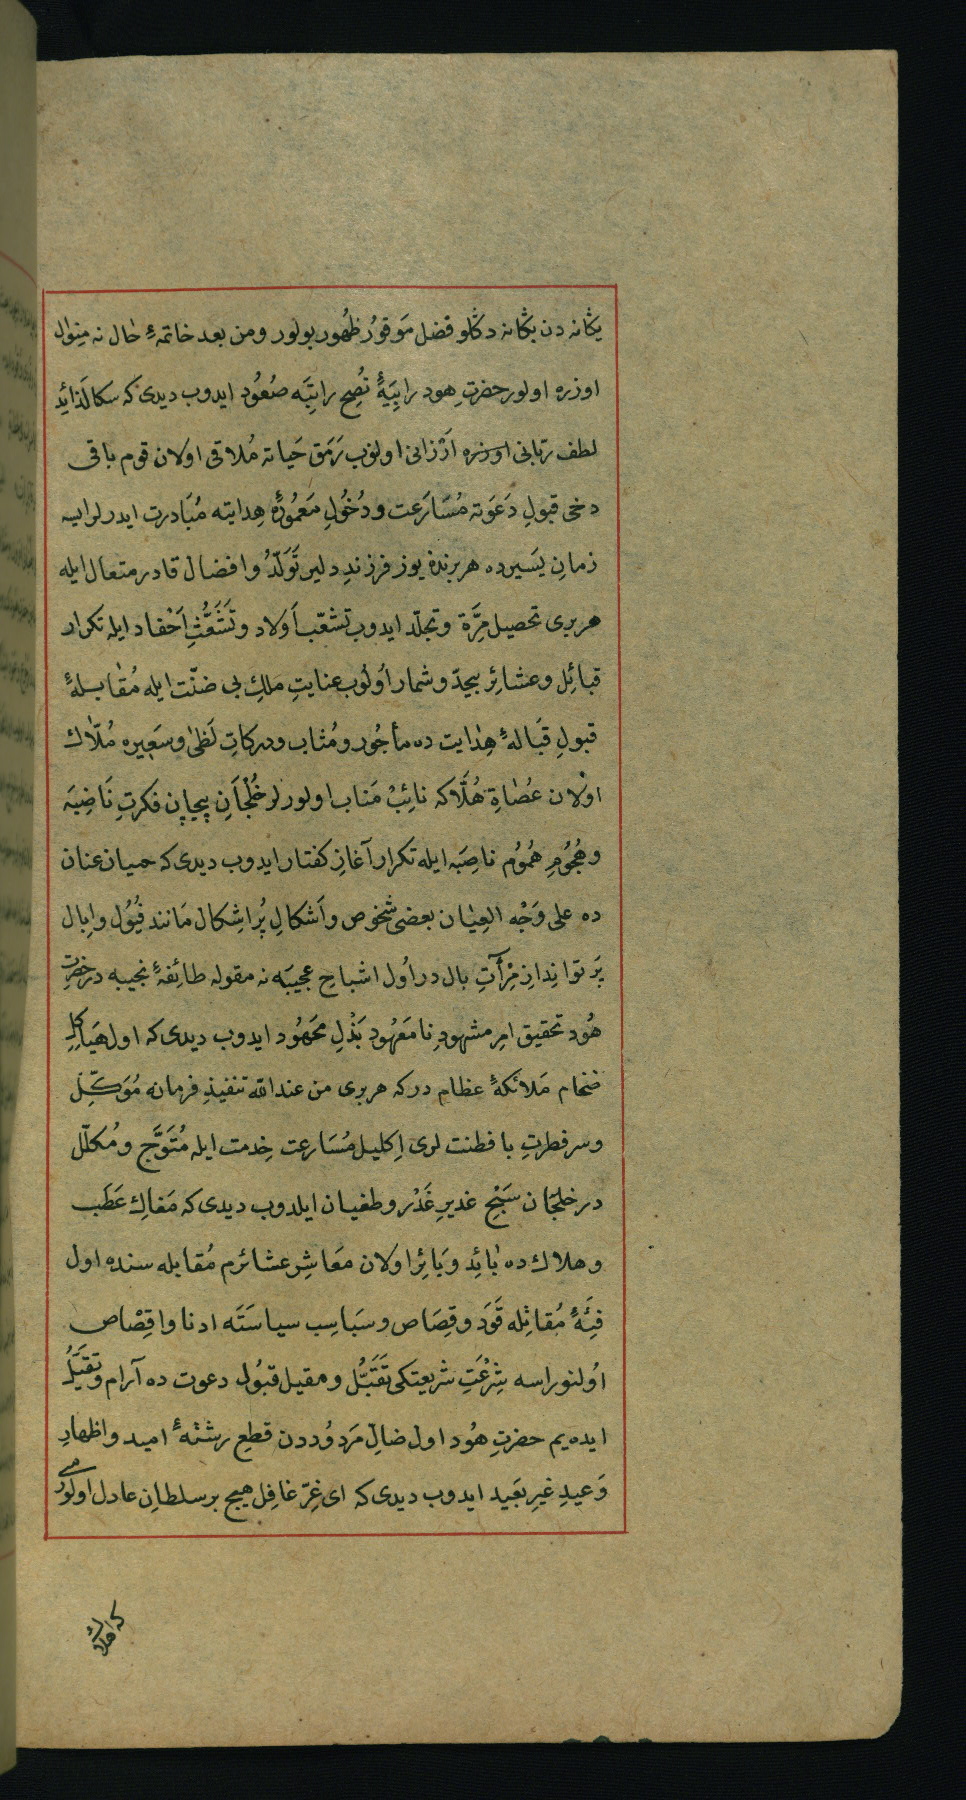 یكانه دن بكانه دكلو فضل موقور ظُهور بولور ومن بعد خاتمۀ حال نه منوال
اوزره اولور حضرتِ هود رابیَۀٔ نُصح رابیَه صُعُود ایدوب دیدی كه سكا لذائِد
لطف ربانی اوزره اَرْزانی اولنوب رَمَق حَیاته مُلاقی اولان قوم باقی
دخی قبولِ دَعوَته مُسَارَعت ودُخُولِ مَعمُورهٔ هِدایته مُبَادرت ایدرلر ایسه
زمانِ یَسیرده هر برندۀ یوز فرزندِ دلیر تَوَلّدُ وافضال قادر متعال ایله
هر بری تحصیل مِرَّة وتجلّد ایدوب تشعّب اَولاد وتَشَعُّثِ اَحْفاد ایله تكرار
قبائِل وعشائِر بیحدّ وشمار اُولوب عنایتِ ملكِ بی ضنّت ایله مُقابلۀٔ
قبولِ قَبالۀٔ هِدایت ده مأجُور ومُثاب ودركاتِ لَظیٰ وسَعِیره مُلّاك
اولان عُصَاةِ هُلَّاكه نائِبْ مَناب اولورلر خُلْجَانِ پیچاپن فكرتِ نَاضِبَه
وهُجُومِ هُمُومِ ناصِبَه ایله تكرار آغازِ كفتار ایدوب دیدی كه میان عنان
ده علی وَجْه العِیَان بعضی شخوص واَشكالِ پُر اشِكال مَانند فُیُول واِبال
پَرتو اندازِ مِرْآتِ بال در اُول اشباحِ عجیبَه نه مقوله طائفۀٔ نجیبه در حضرتِ
هُود تحقیق امرِ مشهودِ نا مَعهُود بَذْلِ مجَهُود ایدوب دیدی كه اول هَیَاكِلِ
ضخام مَلائكۀٔ عظام در كه هر بری من عند الله تنفیذِ فرمانه مُوَكَّل
وسر فطرتِ با فطنت لری اِكلیل مُسَارعت خِدمت ایله مُتَوَّج ومُكلّل
در خلجان سَنجِ غدیرِ غَدْر وطغیان ایلدوب دیدی كه مَغاكِ عَطَب
وهلاك ده بٰائِد وبَائِر اولان مَعَاشِرِ عشائرم مُقابله سنده اول
فِئَۀٔ مُقاتِله قَوَد وقِصَاص وسبَاسِب سیاسَتَه ادنا واقِصاص
اُولنور ایسه شِرْعَتِ شریعتكی تَقَبُّل ومقیل قبُول دعوت ده آرام وتقَیُّل
ایده یم حضرتِ هُود اول ضالِ مَردُوددن قطعِ رشتۀٔ امید واظهارِ
وَعیدِ غیرِ بعَید ایدوب دیدی كه ای غِرّ غافِل هیچ بر سلطانِ عادل اولورمی
كه اهلاك